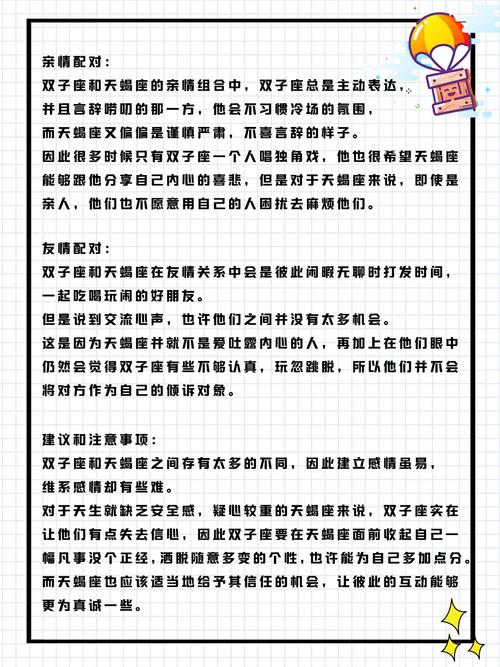 亲情配对：
双子座和天蝎座的亲情组合中，双子座总是主动表达，
并且言辞唠叨的那一方，他会不习惯冷场的氛围，
而天蝎座又偏偏是谨慎严肃，不喜言辞的样子。
因此很多时候只有双子座一个人唱独角戏，他也很希望天蝎座
能够跟他分享自己内心的喜悲，但是对于天蝎座来说，即使是
亲人，他们也不愿意用自己的人困扰去麻烦他们。
友情配对：
双子座和天蝎座在友情关系中会是彼此闲暇无聊时打发时间，
一起吃喝玩闹的好朋友。
但是说到交流心声，也许他们之间并没有太多机会。
这是因为天蝎座并就不是爱吐露内心的人，再加上在他们眼中
仍然会觉得双子座有些不够认真，玩忽跳脱，所以他们并不会
将对方作为自己的倾诉对象。
建议和注意事项：
双子座和天蝎座之间存有太多的不同，因此建立感情虽易，
维系感情却有些难。
对于天生就缺乏安全感，疑心较重的天蝎座来说，双子座实在
让他们有点失去信心，因此双子座要在天蝎座面前收起自己一
幅凡事没个正经，洒脱随意多变的个性，也许能为自己多加点分。
而天蝎座也应该适当地给予其信任的机会，让彼此的互动能够
更为真诚一些。